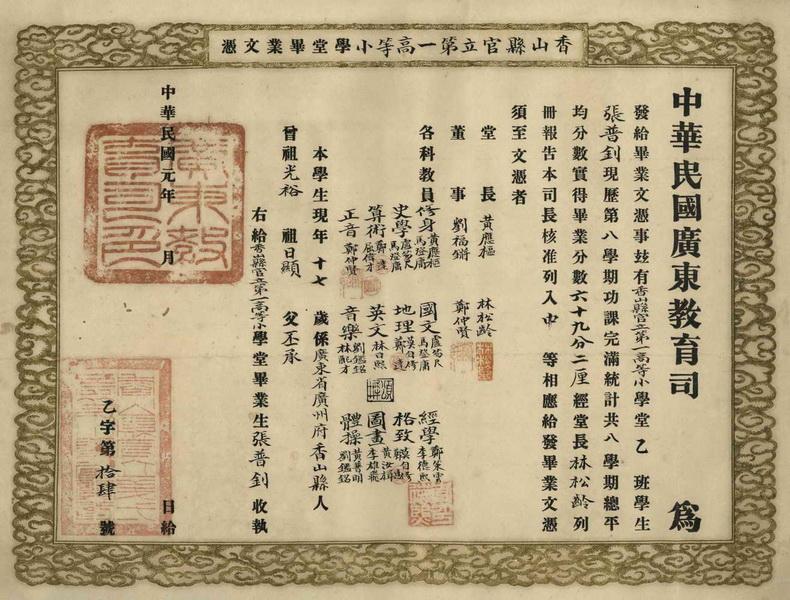 香山縣官立第一高等小學堂畢業文憑
中華民國廣東教育司 爲
發給畢業文憑事玆有香山縣官立第一高等小學堂乙班學生
張普釗現歷第八學期功課完滿統計共八學期總平
均分數實得畢業分數六十九分二厘經堂長林松齡列
冊報告本司長核准列入中等相應給發畢業文憑
須至文憑者
堂長 黃應樞 林松齡
董事 劉福鏘 鄭仲賢
各科教員
修身 黃應樞 馬澄膚
國文 馬澄膚
經學 鄭榮雲 李德熙
史學 馬澄膚
地理
格致
算術
英文 林日熙
圖畫 李雄飛
正音 鄭仲賢
音樂 劉鑑鋁
體操 黃普明 劉鑑鋁
本學生現年十七歲係廣東省廣州府香山縣人
曾祖光裕 祖日顯 父丕承
右給香山縣官立第一高等小學堂畢業生張普釗收執
中華民國元年 月 日給
乙字第拾肆號